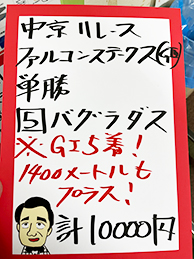 中京11レース
ファルコンステークス(GⅢ)
単勝
5 バグラダス
※GI5着!
1400メートルも
プラス!
計10000円